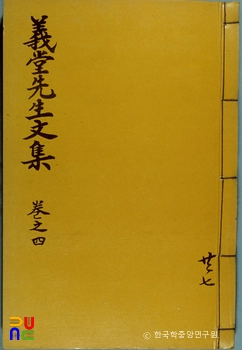 義堂先生文集
卷之四
共七
ⓒ 한국학중앙연구원